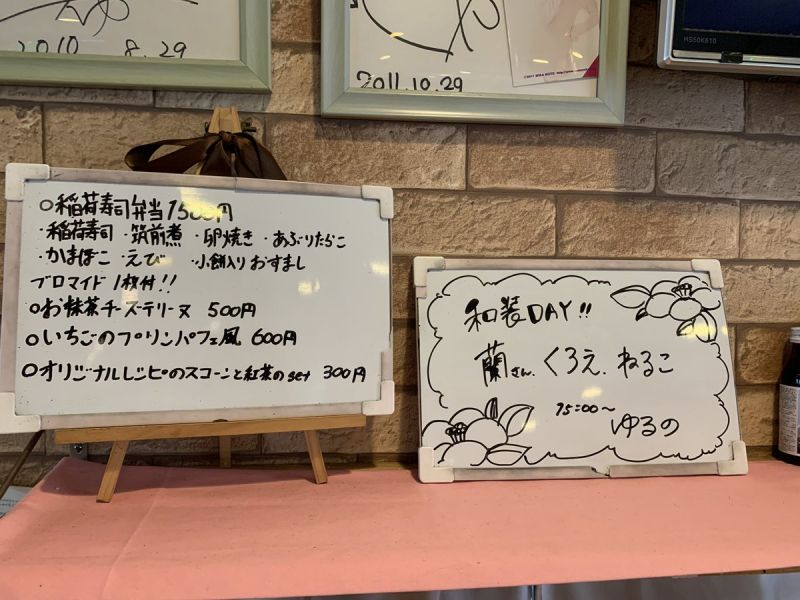 2010 8.29
2011.10.29
MS50K610
○稲荷寿司弁当1500円
・稲荷寿司 ・筑前煮 ・卵焼き ・あぶりたらこ
・かまぼこ ・えび ・小餅入りおすまし
ブロマイド1枚付!!
○お抹茶チーズテリーヌ 500円
○いちごのプリンパフェ風 600円
○オリジナルレシピのスコーンと紅茶のset 300円
和装DAY!!
蘭さん、くろえ、ねるこ
15:00〜
ゆるの